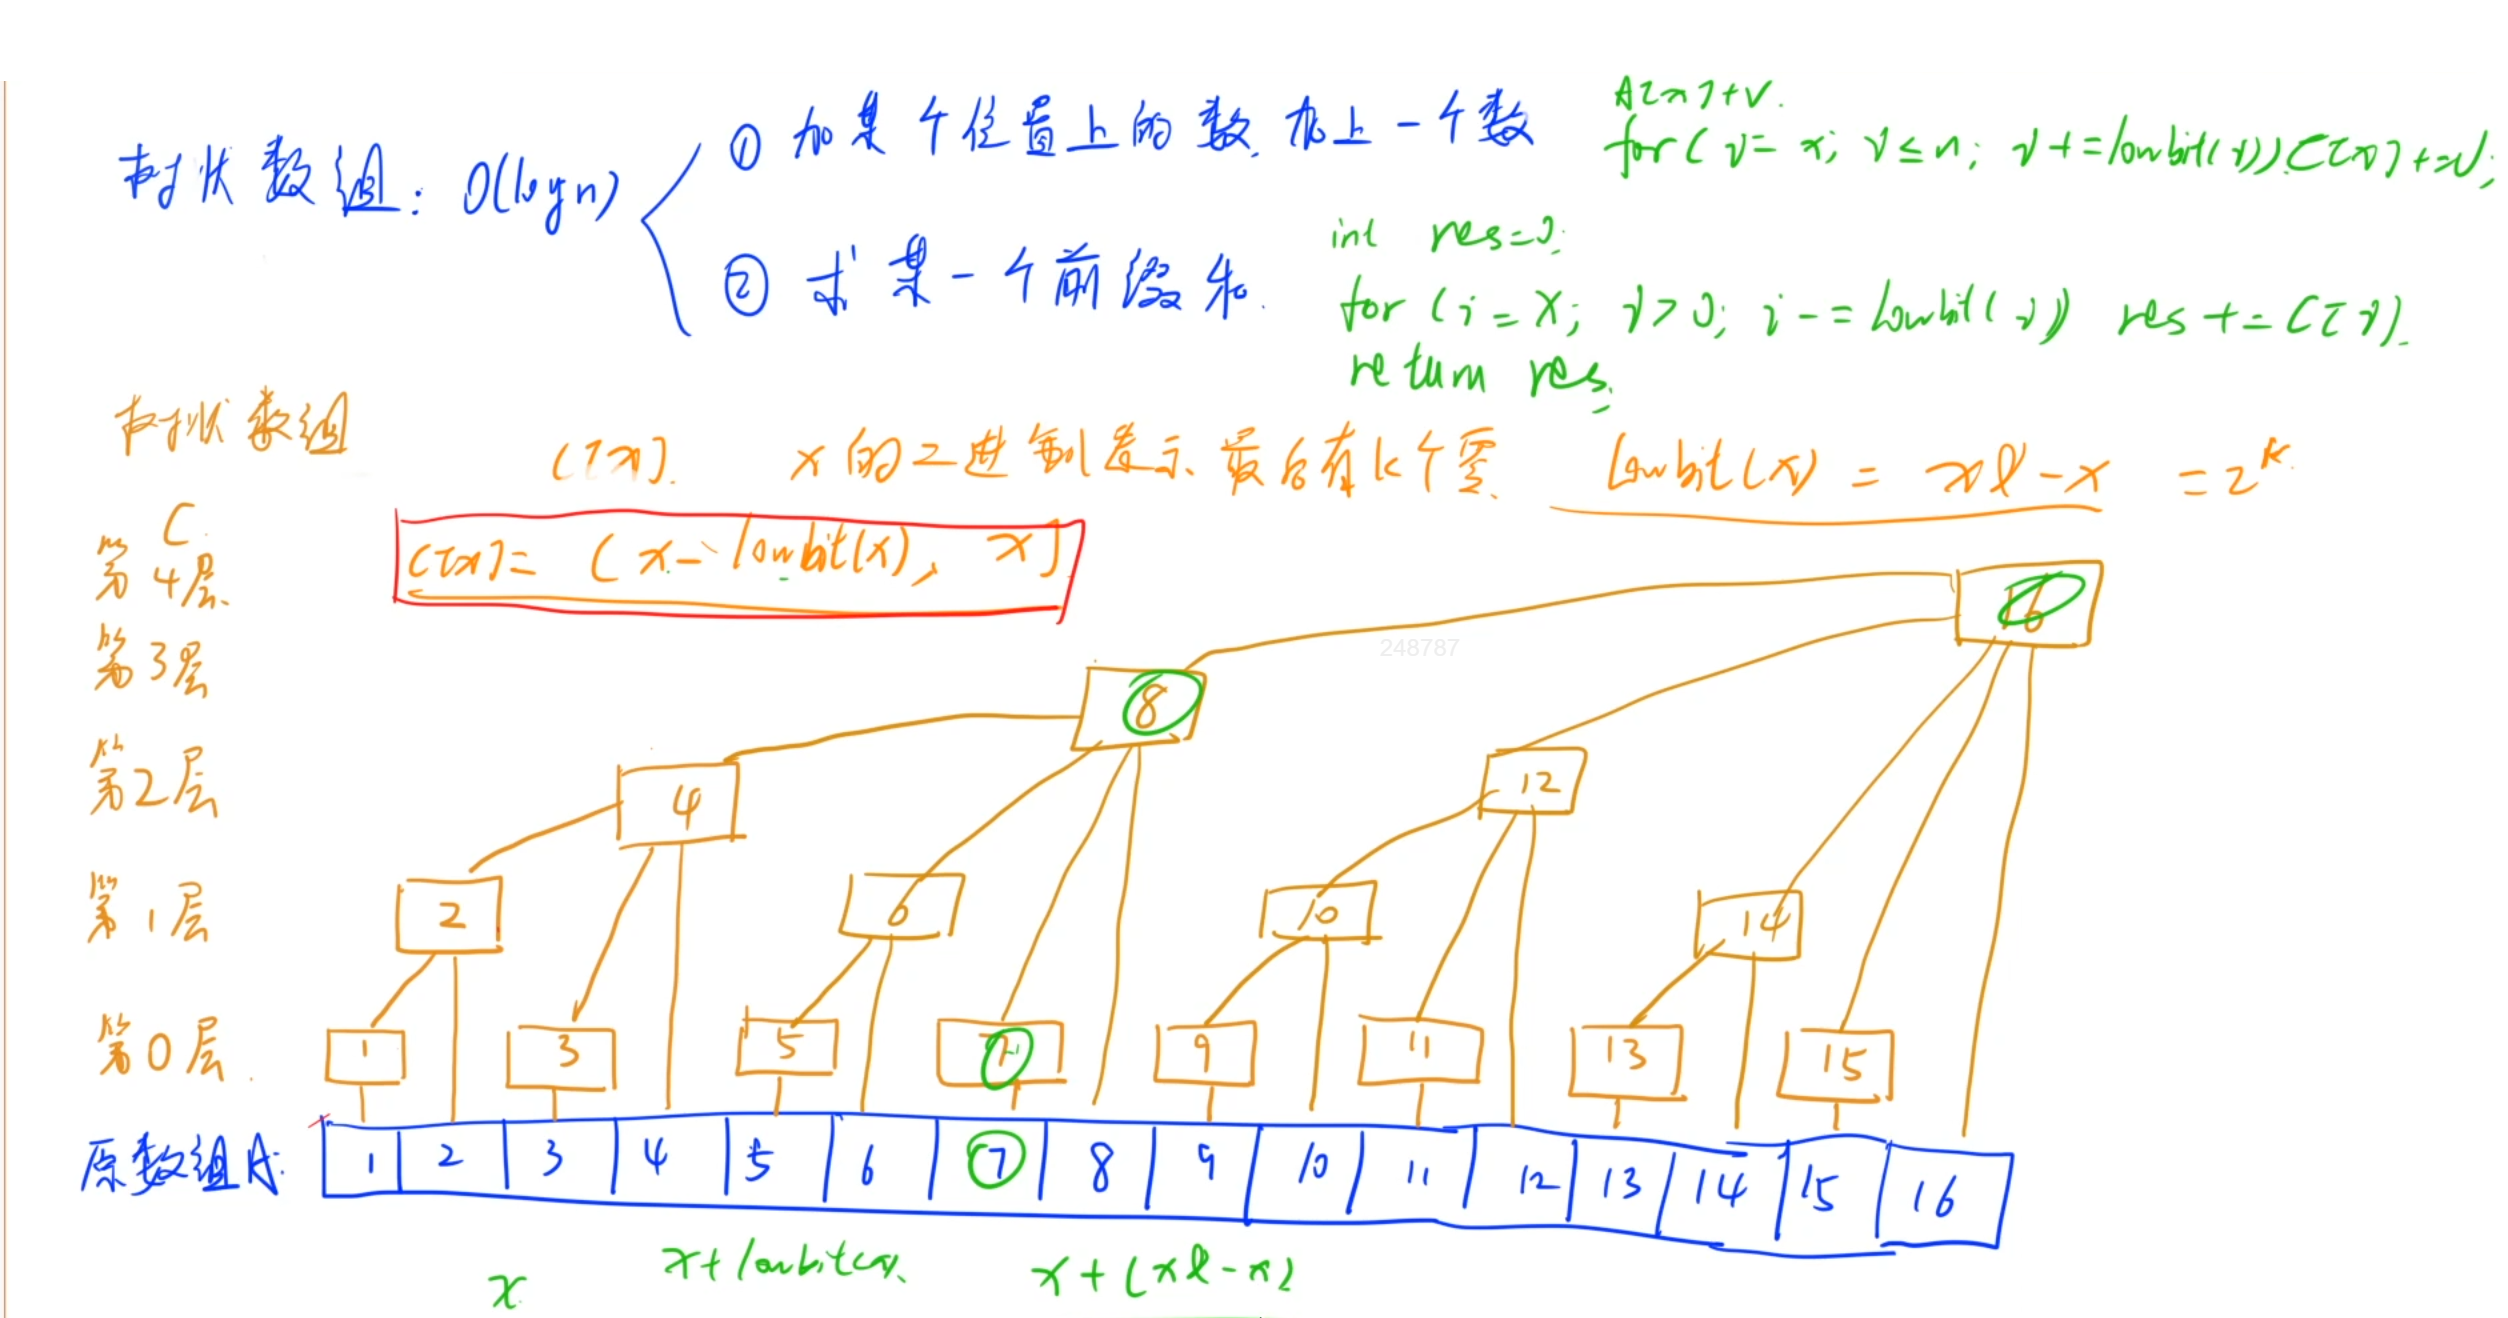 树状数组: O(logn)
① 加某个位置上的数,加上一个数
② 求某一个前缀和.
A[x]+v.
for(i=x; i≤n; i+=lowbit(i)) C[x]+=v;
int res=0;
for (i=x; i>0; i-=lowbit(i)) res+=C[i].
return res.
树状数组
C[x]. x的二进制表示、最后有k个零、 lowbit(x) = x&-x = 2^k.
C[x]= (x-lowbit(x), x]
C.
第4层.
16
第3层
248787
8
第2层
4 12
第1层
2 6 10 14
第0层.
1 3 5 7 9 11 13 15
原数组A:
1 2 3 4 5 6 7 8 9 10 11 12 13 14 15 16
x x+lowbit(x) x+(x&-x)